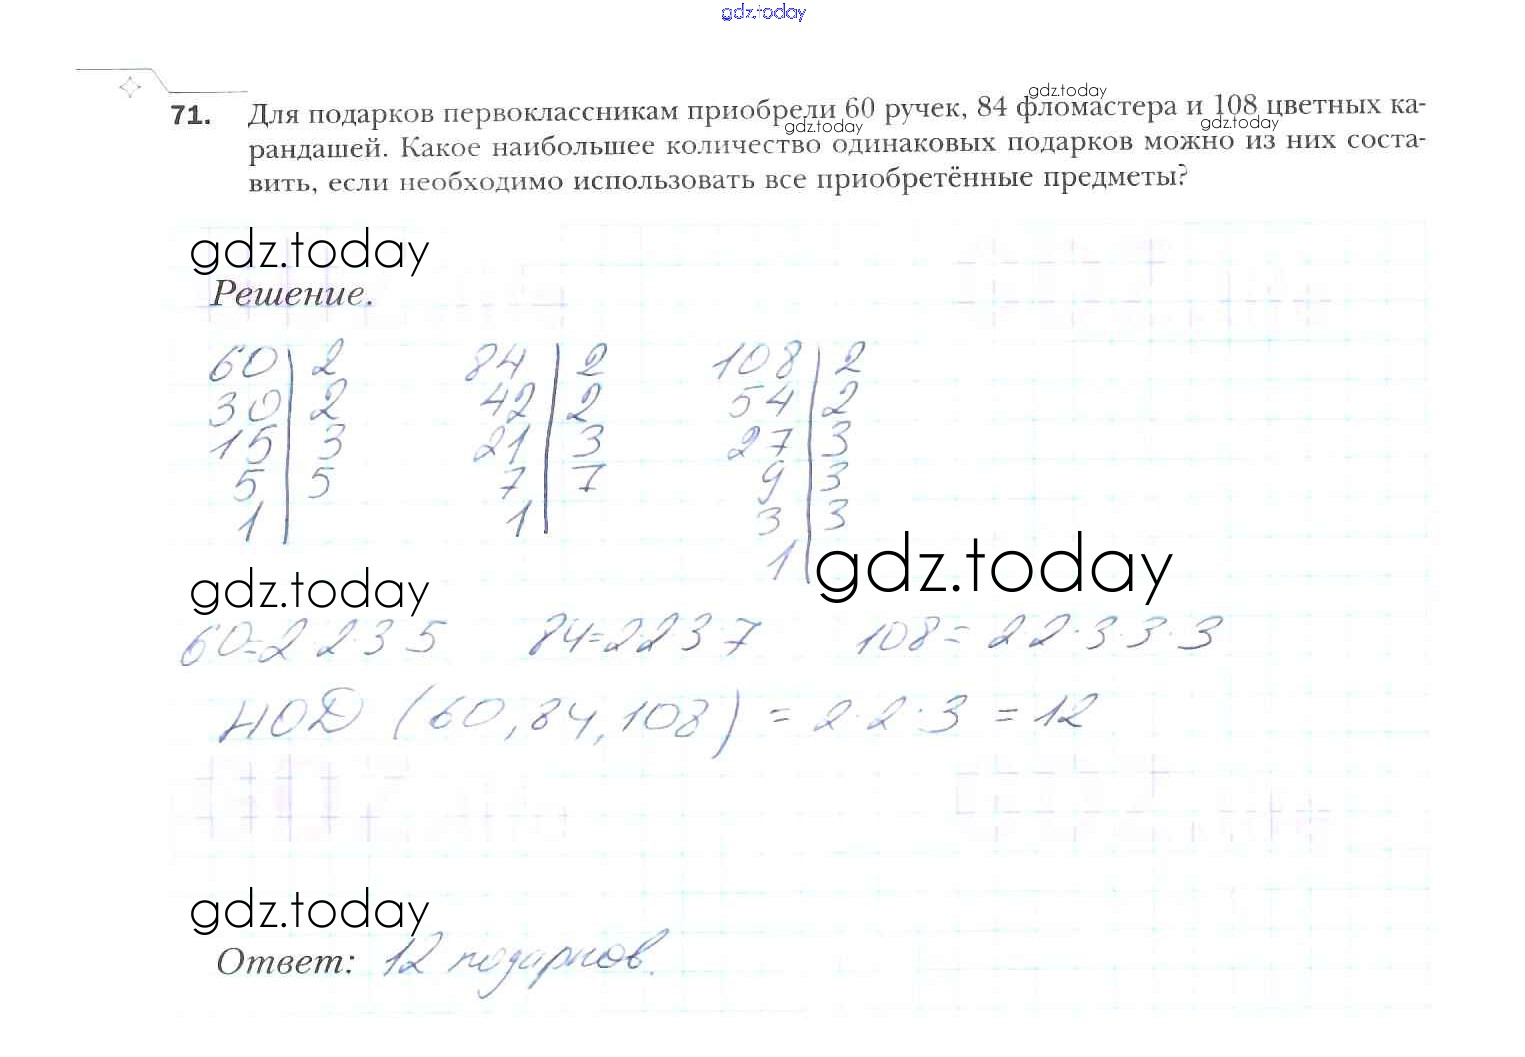 gdz.today
71. Для подарков первоклассникам приобрели 60 ручек, 84 фломастера и 108 цветных ка-
gdz.today
gdz.today gdz.today
рандашей. Какое наибольшее количество одинаковых подарков можно из них соста-
вить, если необходимо использовать все приобретённые предметы?
gdz.today
Решение.
60 | 2 84 | 2 108 | 2
30 | 2 42 | 2 54 | 2
15 | 3 21 | 3 27 | 3
5 | 5 7 | 7 9 | 3
1 | 1 | 3 | 3
1 |
gdz.today
gdz.today
60=2·2·3·5 84=2·2·3·7 108=2·2·3·3·3
НОД (60,84,108) = 2·2·3 = 12
gdz.today
Ответ: 12 подарков.